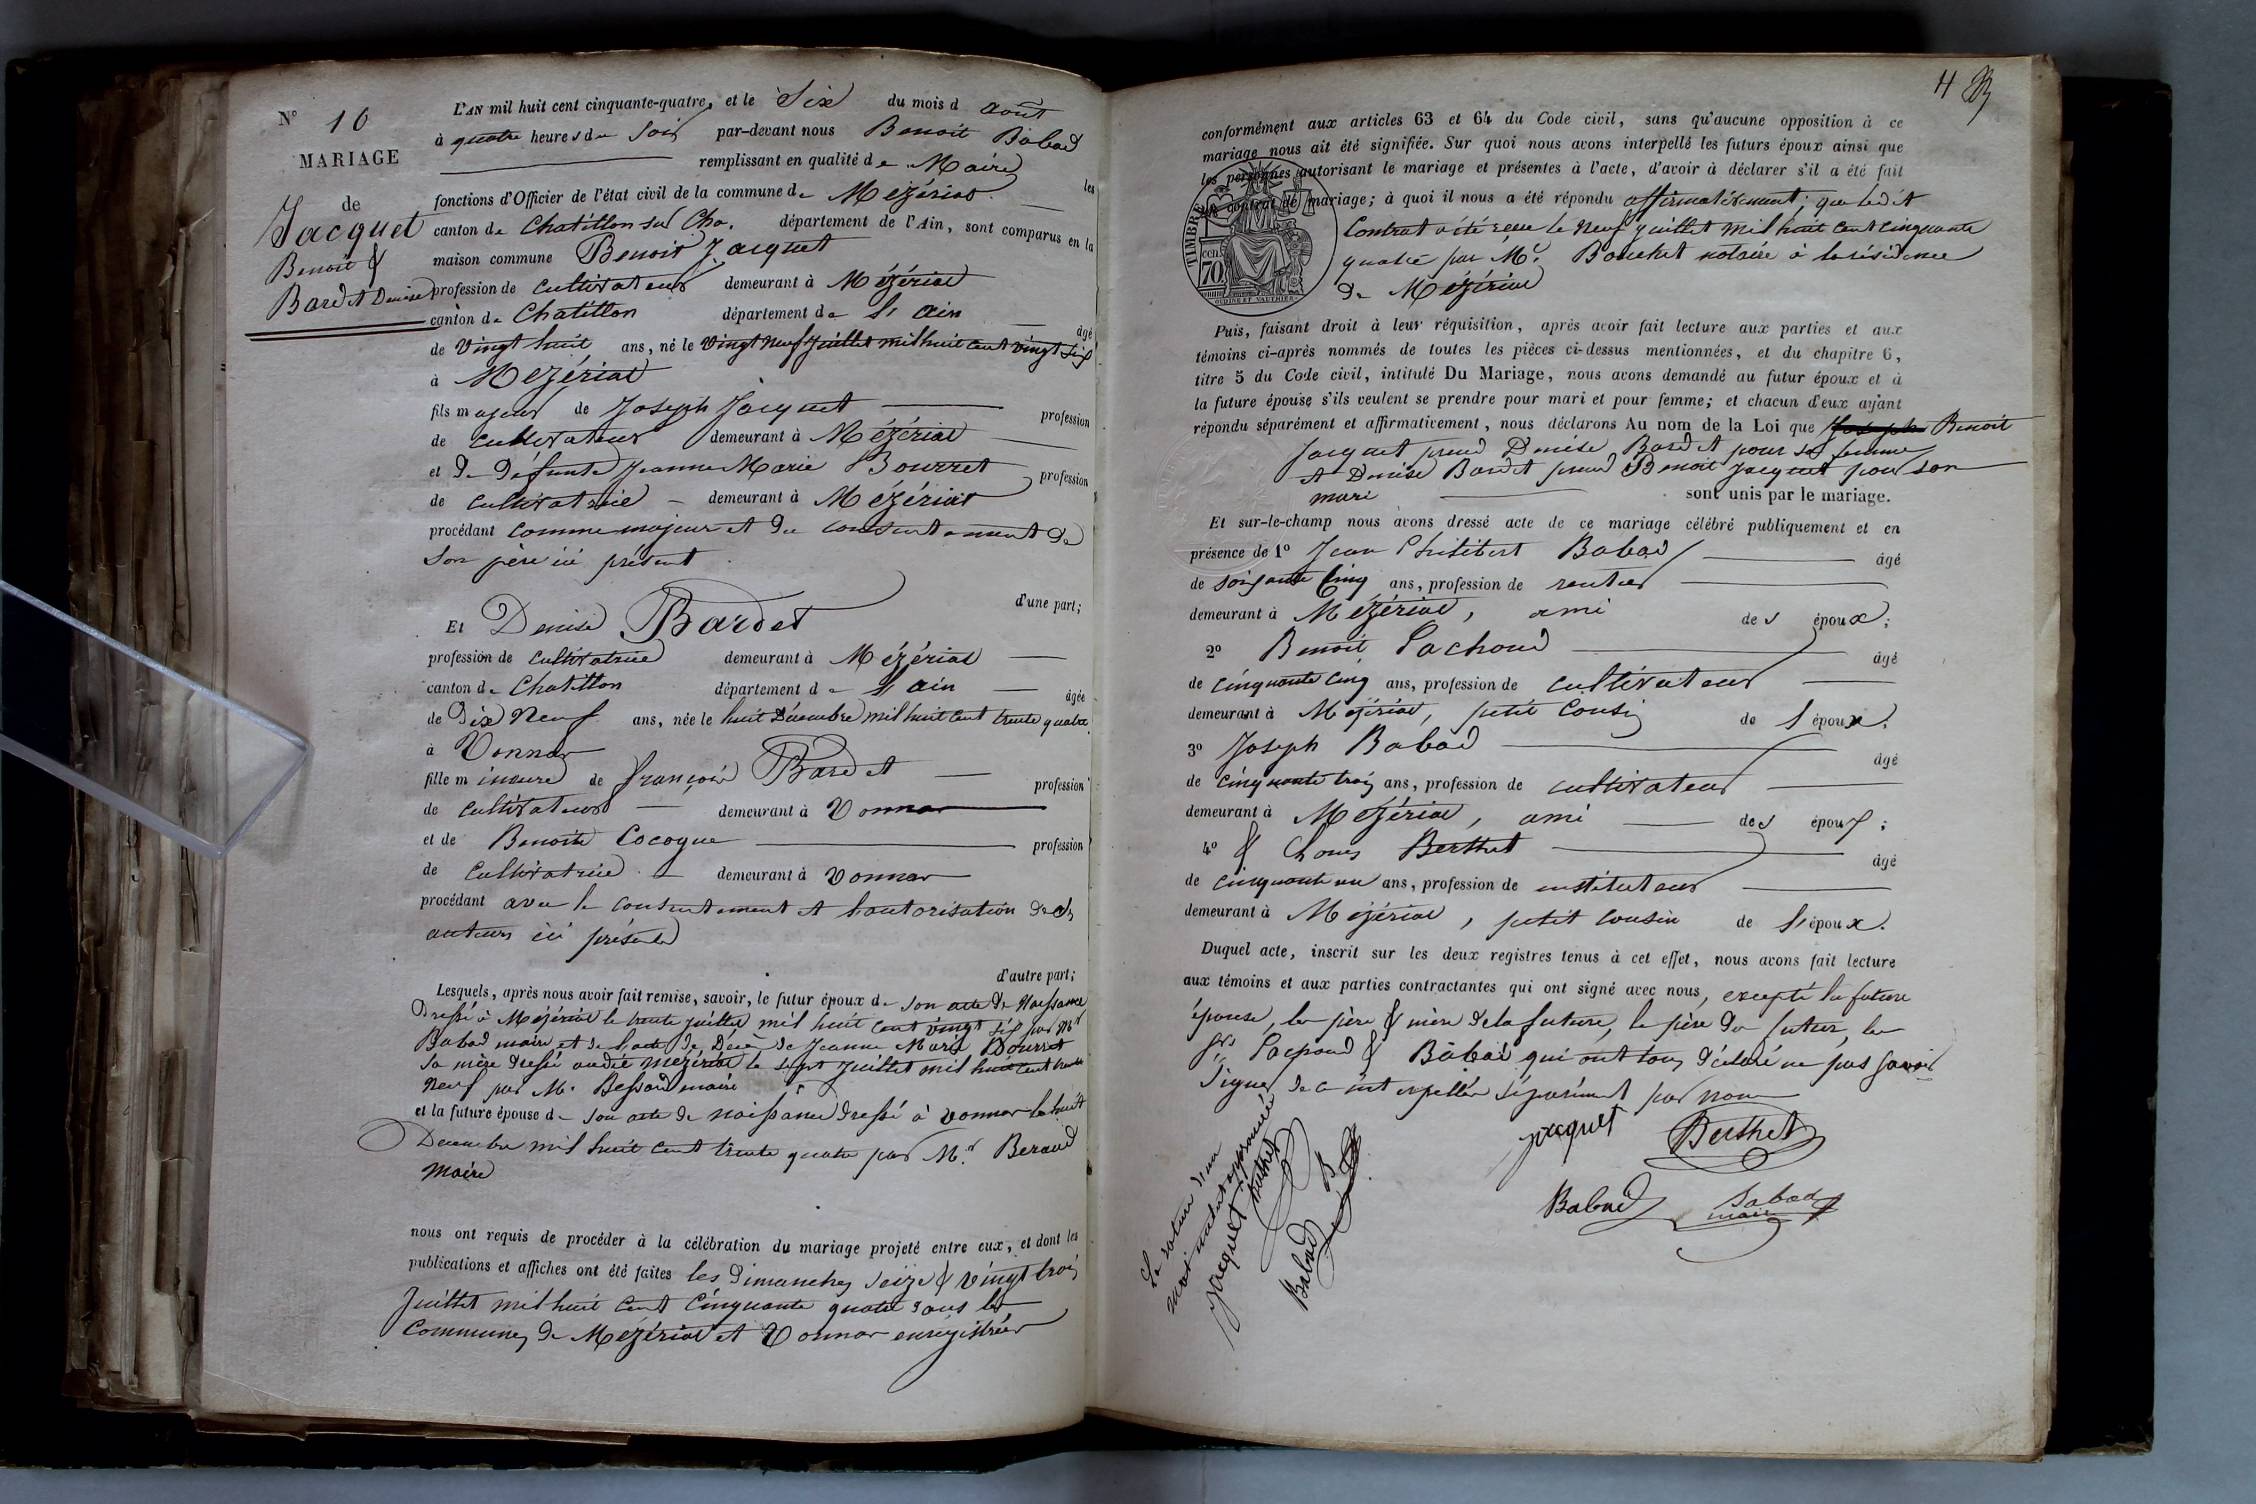 N° 10
MARIAGE
de
Jacquet
Benoit &
Bardet Denise
L'AN mil huit cent cinquante-quatre, et le Six du mois d août
à quatre heures du Soir par-devant nous Benoit Babad
remplissant en qualité de Maire les
fonctions d'Officier de l'état civil de la commune de Mézériat
canton de Chatillon sur Cha. département de l'Ain, sont comparus en la
maison commune Benoit Jacquet
profession de cultivateur demeurant à Mézériat
canton de Chatillon département de l'ain âgé
de vingt huit ans, né le vingt neuf juillet mil huit cent vingt six
à Mézériat
fils majeur de Joseph Jacquet profession
de cultivateur demeurant à Mézériat
et de défunte Jeanne Marie Bourret profession
de cultivatrice demeurant à Mézériat
procédant comme majeur et du consentement de
son père ici présent
d'une part;
Et Denise Bardet
profession de cultivatrice demeurant à Mézériat
canton de Chatillon département de l'ain âgée
de dix neuf ans, née le huit Décembre mil huit cent trente quatre
à Vonnas
fille mineure de françois Bardet profession
de cultivateur demeurant à Vonnas
et de Benoite Cocogne profession
de cultivatrice demeurant à Vonnas
procédant avec le consentement et l'autorisation de ses
auteurs ici présents
d'autre part;
Lesquels, après nous avoir fait remise, savoir, le futur époux de son acte de Naissance
dressé à Mézériat le trente juillet mil huit cent vingt six par Mr
Babad maire et de l'acte de Décès de Jeanne Marie Bourret
sa mère dressé audit Mézériat le sept juillet mil huit cent trente
neuf par Mr Bessard maire
et la future épouse de son acte de naissance dressé à Vonnas le huit
Décembre mil huit cent trente quatre par Mr Beraud
maire
nous ont requis de procéder à la célébration du mariage projeté entre eux, et dont les
publications et affiches ont été faites les dimanches seize & vingt trois
juillet mil huit cent cinquante quatre dans les
communes de Mézériat et Vonnas enregistrées
conformément aux articles 63 et 64 du Code civil, sans qu'aucune opposition à ce
mariage nous ait été signifiée. Sur quoi nous avons interpellé les futurs époux ainsi que
les personnes autorisant le mariage et présentes à l'acte, d'avoir à déclarer s'il a été fait
un contrat de mariage; à quoi il nous a été répondu affirmativement; que ledit
Contrat a été reçu le neuf juillet mil huit cent cinquante
quatre par Me Bouchet notaire à la résidence
de Mézériat
TIMBRE
cen
70
OUDINE ET VAUTHIER
Puis, faisant droit à leur réquisition, après avoir fait lecture aux parties et aux
témoins ci-après nommés de toutes les pièces ci-dessus mentionnées, et du chapitre 6,
titre 5 du Code civil, intitulé Du Mariage, nous avons demandé au futur époux et à
la future épouse s'ils veulent se prendre pour mari et pour femme; et chacun d'eux ayant
répondu séparément et affirmativement, nous déclarons Au nom de la Loi que Joseph Benoit
Jacquet prend Denise Bardet pour sa femme
et Denise Bardet prend Benoit Jacquet pour son
mari sont unis par le mariage.
Et sur-le-champ nous avons dressé acte de ce mariage célébré publiquement et en
présence de 1° Jean Philibert Babad âgé
de soixante cinq ans, profession de rentier
demeurant à Mézériat, ami des époux;
2° Benoit Pachoud âgé
de cinquante cinq ans, profession de cultivateur
demeurant à Mézériat, petit cousin de l'époux.
3° Joseph Babad âgé
de cinquante trois ans, profession de cultivateur
demeurant à Mézériat, ami des époux;
4° & Louis Berthet âgé
de cinquante un ans, profession de instituteur
demeurant à Mézériat, petit cousin de l'époux.
Duquel acte, inscrit sur les deux registres tenus à cet effet, nous avons fait lecture
aux témoins et aux parties contractantes qui ont signé avec nous, excepté la future
épouse, les père & mère de la future, le père du futur, les
srs Pachoud & Babad qui ont tous déclaré ne pas savoir
signer de ce interpellés séparément par nous
jacquet Berthet
Babad Babad
maire
La rature d'un
mot nul est approuvée
jacquet Berthet
Babad B